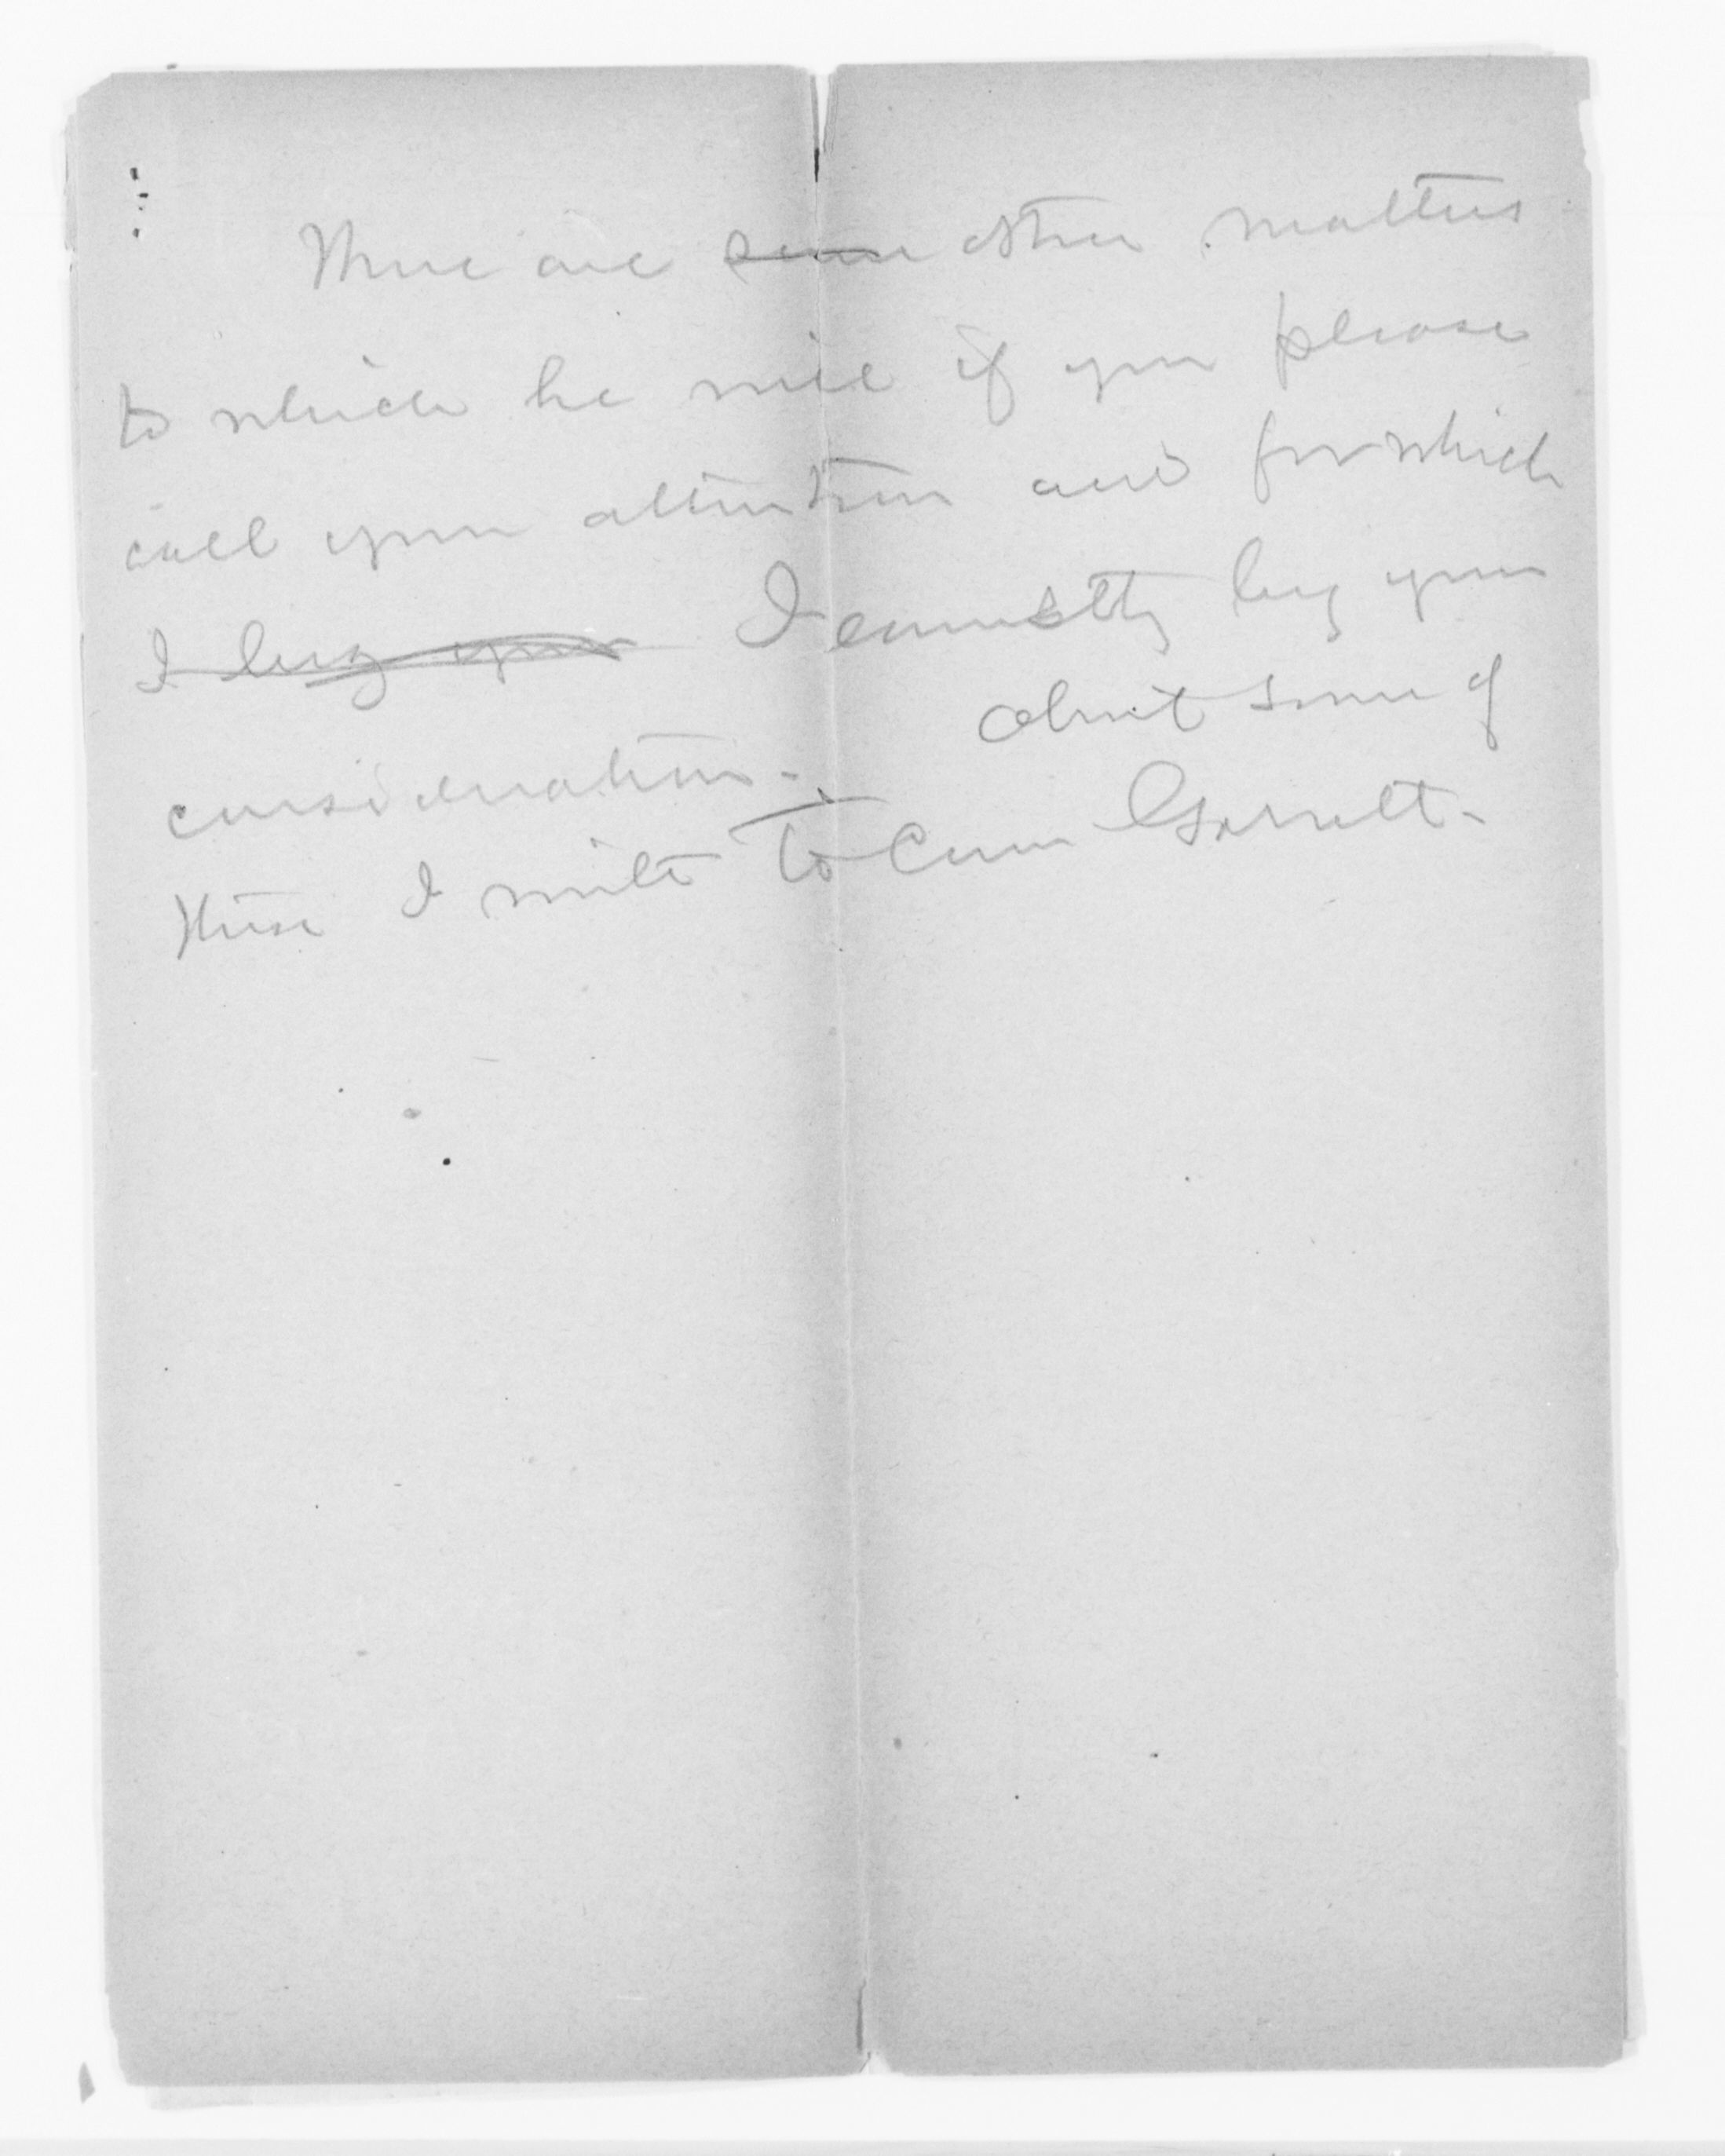 There are some other matters
to which he will if you please
call your attention and for which
I beg your I earnestly beg your
consideration. About some of
these I write to Com Garrett.